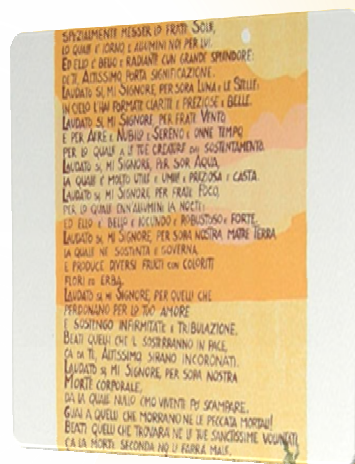 SPEZIALMENTE MESSER LO FRATE SOLE,
LO QUALE È IORNO E ALLUMINI NOI PER LUI.
ED ELLO È BELLO E RADIANTE CUN GRANDE SPLENDORE:
DE TE, ALTISSIMO PORTA SIGNIFICAZIONE.
LAUDATO SI, MI SIGNORE, PER SORA LUNA E LE STELLE:
IN CIELO L'HAI FORMATE CLARITE E PREZIOSE E BELLE.
LAUDATO SI, MI SIGNORE, PER FRATE VENTO,
E PER AIRE E NUBILO E SERENO E ONNE TEMPO
PER LO QUALE A LE TUE CREATURE DAI SUSTENTAMENTO.
LAUDATO SI, MI SIGNORE, PER SOR AQUA,
LA QUALE È MOLTO UTILE E UMILE E PREZIOSA E CASTA.
LAUDATO SI, MI SIGNORE PER FRATE FOCO,
PER LO QUALE ENN'ALLUMINI LA NOCTE:
ED ELLO È BELLO E IOCUNDO E ROBUSTOSO E FORTE.
LAUDATO SI, MI SIGNORE, PER SORA NOSTRA MATRE TERRA
LA QUALE NE SOSTENTA E GOVERNA,
E PRODUCE DIVERSI FRUCTI CON COLORITI
FLORI ED ERBA.
LAUDATO SI, MI SIGNORE, PER QUELLI CHE
PERDONANO PER LO TUO AMORE
E SOSTENGO INFIRMITATE E TRIBULAZIONE,
BEATI QUELLI CHE L SOSTERRANNO IN PACE,
CA DA TE, ALTISSIMO SIRANO INCORONATI.
LAUDATO SI, MI SIGNORE, PER SORA NOSTRA
MORTE CORPORALE,
DA LA QUALE NULLO OMO VIVENTE PO' SCAMPARE.
GUAI A QUELLI CHE MORRANO NE LE PECCATA MORTALI!
BEATI QUELLI CHE TROVARÀ NE LE TUE SANCTISSIME VOLUNTATI,
CA LA MORTE SECONDA NO LI FARRÀ MALE.